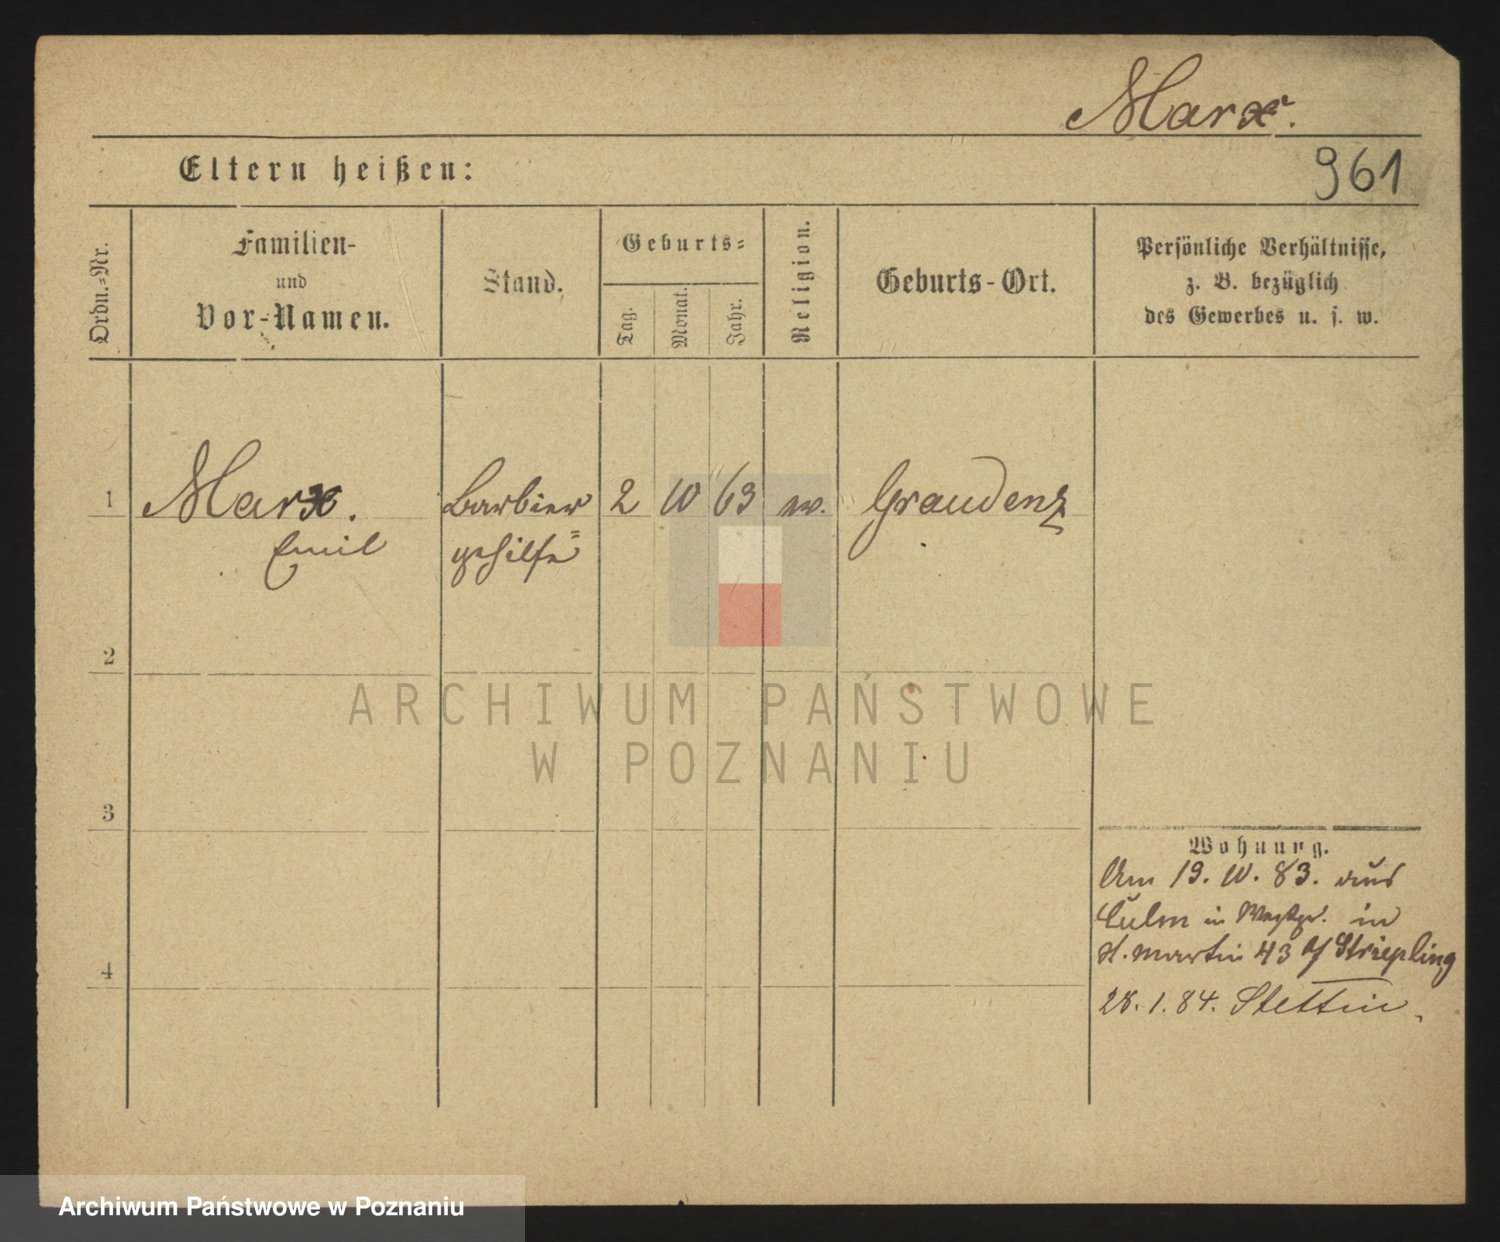 Marx.
Eltern heißen:
961
Ordn.-Nr.
Familien-
und
Vor-Namen.
Stand.
Geburts-
Tag.
Monat.
Jahr.
Religion.
Geburts-Ort.
Persönliche Verhältnisse,
z. B. bezüglich
des Gewerbes u. s. w.
1 Marx. Barbier 2 10 63 ev. Graudenz
Emil gehilfe
2
3
4
Wohnung.
Am 19. 10. 83. aus
Culm in Westpr. in
St. Martin 43 b/ Striepling
28. 1. 84. Stettin.
ARCHIWUM PAŃSTWOWE
W POZNANIU
Archiwum Państwowe w Poznaniu